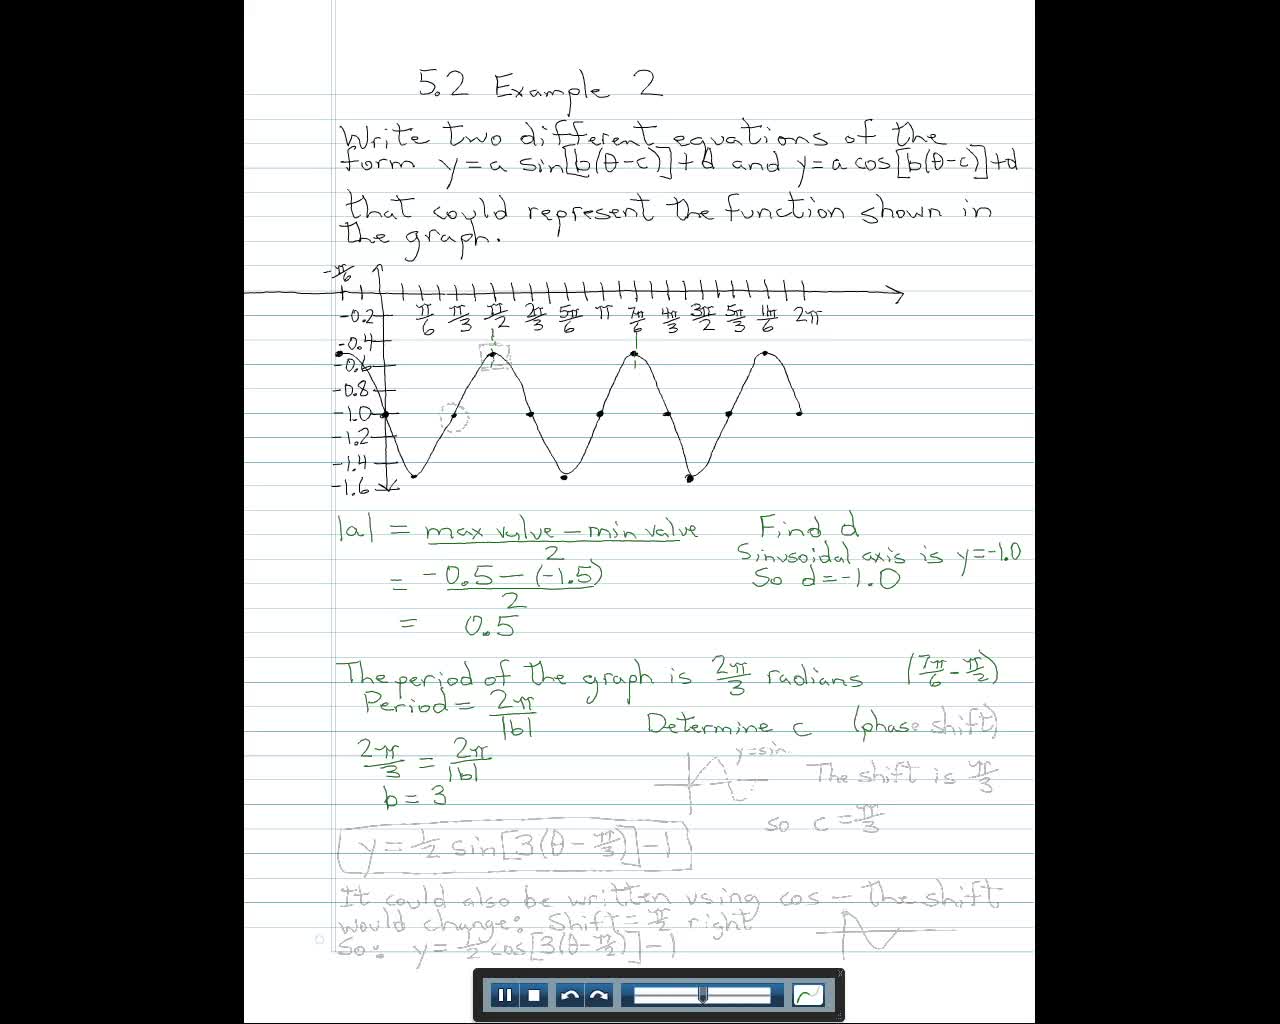 5.2 Example 2
Write two different equations of the
form y = a sin[b(θ-c)]+d and y=a cos[b(θ-c)]+d
that could represent the function shown in
the graph.
-π/6
π/6 π/3 π/2 2π/3 5π/6 π 7π/6 4π/3 3π/2 5π/3 11π/6 2π
-0.2
-0.4
-0.6
-0.8
-1.0
-1.2
-1.4
-1.6
|a| = (max value - min value)/2
= (-0.5 - (-1.5))/2
= 0.5
Find d
Sinusoidal axis is y=-1.0
So d=-1.0
The period of the graph is 2π/3 radians (7π/6 - π/2)
Period = 2π/|b|
2π/3 = 2π/|b|
b = 3
Determine c (phase shift)
y=sin
The shift is π/3
so c = π/3
y = 1/2 sin[3(θ - π/3)] - 1
It could also be written using cos - the shift
would change: Shift = π/2 right
So: y = 1/2 cos[3(θ-π/2)] - 1